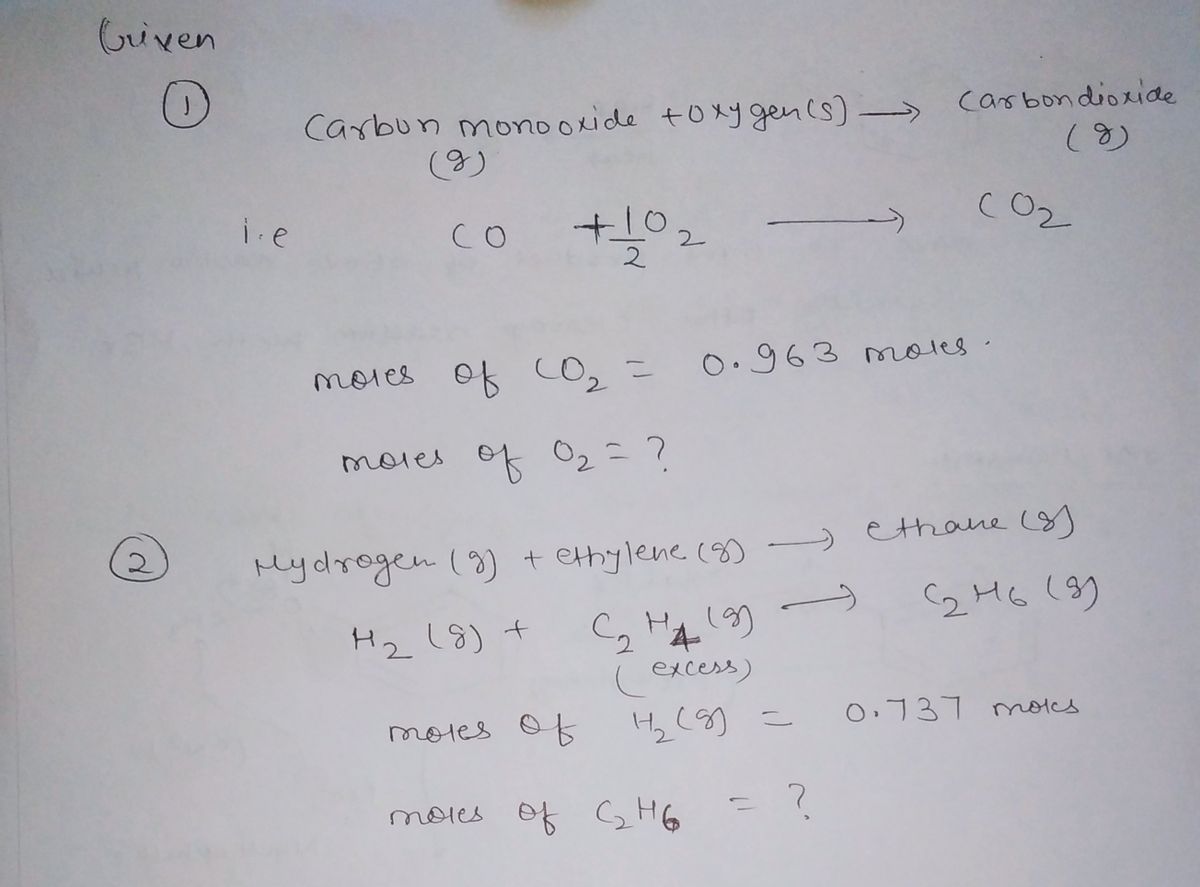 Given
①
Carbon monooxide + oxygen(s) → Carbondioxide
(g) (g)
i.e CO + 1/2 O2 → CO2
moles of CO2 = 0.963 moles.
moles of O2 = ?
② Hydrogen (g) + ethylene (g) → ethane (g)
H2 (g) + C2H4 (g) → C2H6 (g)
(excess)
moles of H2 (g) = 0.737 moles
moles of C2H6 = ?